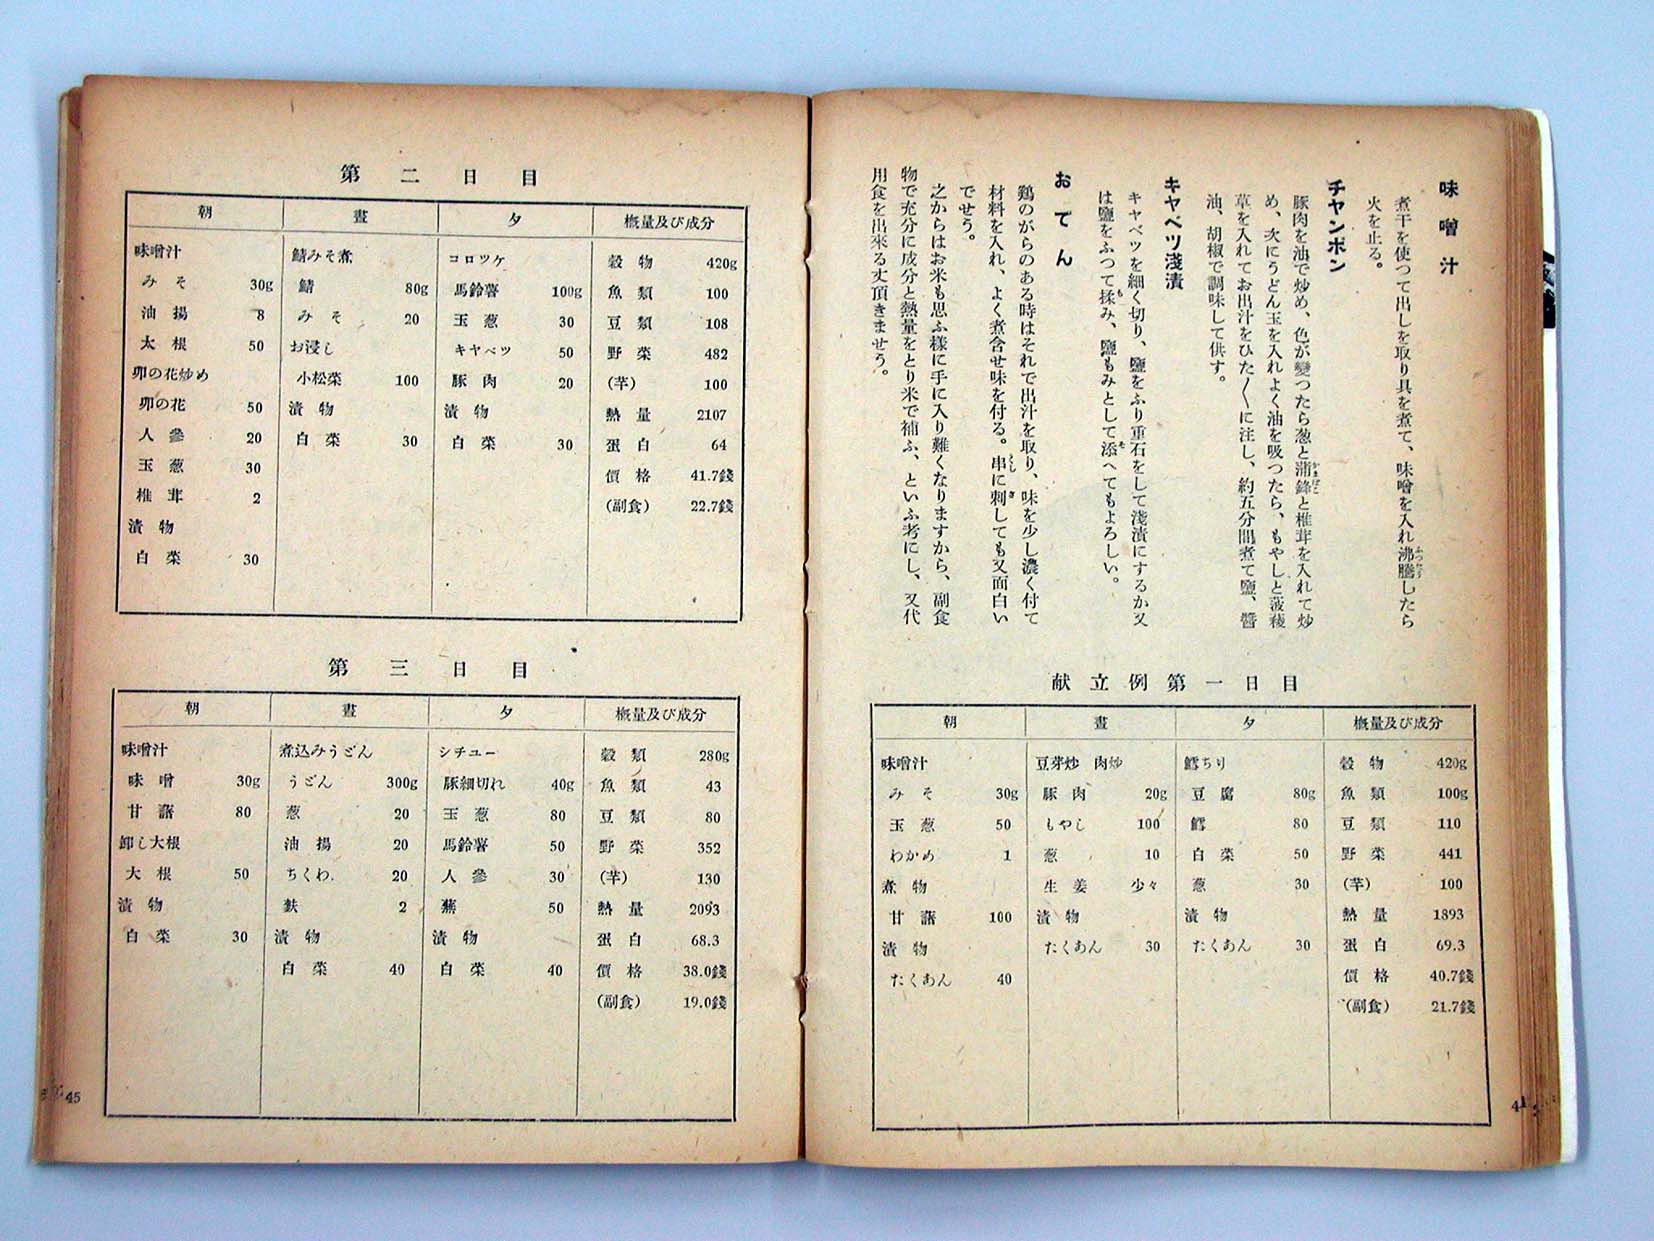 味噌汁
煮干を使つて出しを取り具を煮て、味噌を入れ沸騰したら
火を止る。
チヤンポン
豚肉を油で炒め、色が變つたら葱と蒲鋒と椎茸を入れて炒
め、次にうどん玉を入れよく油を吸つたら、もやしと菠薐
草を入れてお出汁をひた〱に注し、約五分間煮て鹽、醬
油、胡椒で調味して供す。
キヤベツ淺漬
キヤベツを細く切り、鹽をふり重石をして淺漬にするか又
は鹽をふつて揉み、鹽もみとして添へてもよろしい。
おでん
鷄のがらのある時はそれで出汁を取り、味を少し濃く付て
材料を入れ、よく煮含せ味を付る。串に刺しても又面白い
でせう。
之からはお米も思ふ樣に手に入り難くなりますから、副食
物で充分に成分と熱量をとり米で補ふ、といふ考にし、又代
用食を出來る丈頂きませう。
献立例第一日目
朝 晝 夕 概量及び成分
味噌汁 豆芽炒 肉炒 鱈ちり 穀物 420g
みそ 30g 豚肉 20g 豆腐 80g 魚類 100g
玉葱 50 もやし 100 鱈 80 豆類 110
わかめ 1 葱 10 白菜 50 野菜 441
煮物 生姜 少々 葱 30 (芋) 100
甘藷 100 漬物 漬物 熱量 1893
漬物 たくあん 30 たくあん 30 蛋白 69.3
たくあん 40 價格 40.7錢
(副食) 21.7錢
第二日目
朝 晝 夕 概量及び成分
味噌汁 鯖みそ煮 コロツケ 穀物 420g
みそ 30g 鯖 80g 馬鈴薯 100g 魚類 100
油揚 8 みそ 20 玉葱 30 豆類 108
太根 50 お浸し キヤベツ 50 野菜 482
卯の花炒め 小松菜 100 豚肉 20 (芋) 100
卯の花 50 漬物 漬物 熱量 2107
人參 20 白菜 30 白菜 30 蛋白 64
玉葱 30 價格 41.7錢
椎茸 2 (副食) 22.7錢
漬物
白菜 30
第三日目
朝 晝 夕 概量及び成分
味噌汁 煮込みうどん シチユー 穀類 280g
味噌 30g うどん 300g 豚細切れ 40g 魚類 43
甘藷 80 葱 20 玉葱 80 豆類 80
卸し大根 油揚 20 馬鈴薯 50 野菜 352
大根 50 ちくわ 20 人參 30 (芋) 130
漬物 麩 2 蕪 50 熱量 2093
白菜 30 漬物 漬物 蛋白 68.3
白菜 40 白菜 40 價格 38.0錢
(副食) 19.0錢
45